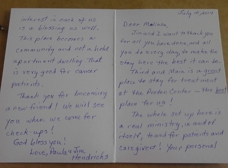 July 9, 2014
Dear Melinda,
I want to thank you
for all you have done, and all
you do every day to make the
stay here the best it can be.
Third and Main is a great
place to stay for treatment
at the Proton Center — the best
place for us!
The whole set up here is
a real ministry, a sacred
island, to and for patients and
caregivers! Your personal
interest in each of us
is a blessing as well.
This place becomes a
community and not a hotel
apartment dwelling. That
is very good for cancer
patients.
Thank you for becoming
a new friend! We will see
you when we come for
check-ups!
God bless you!
Love, Paula & Jim
Hendricks